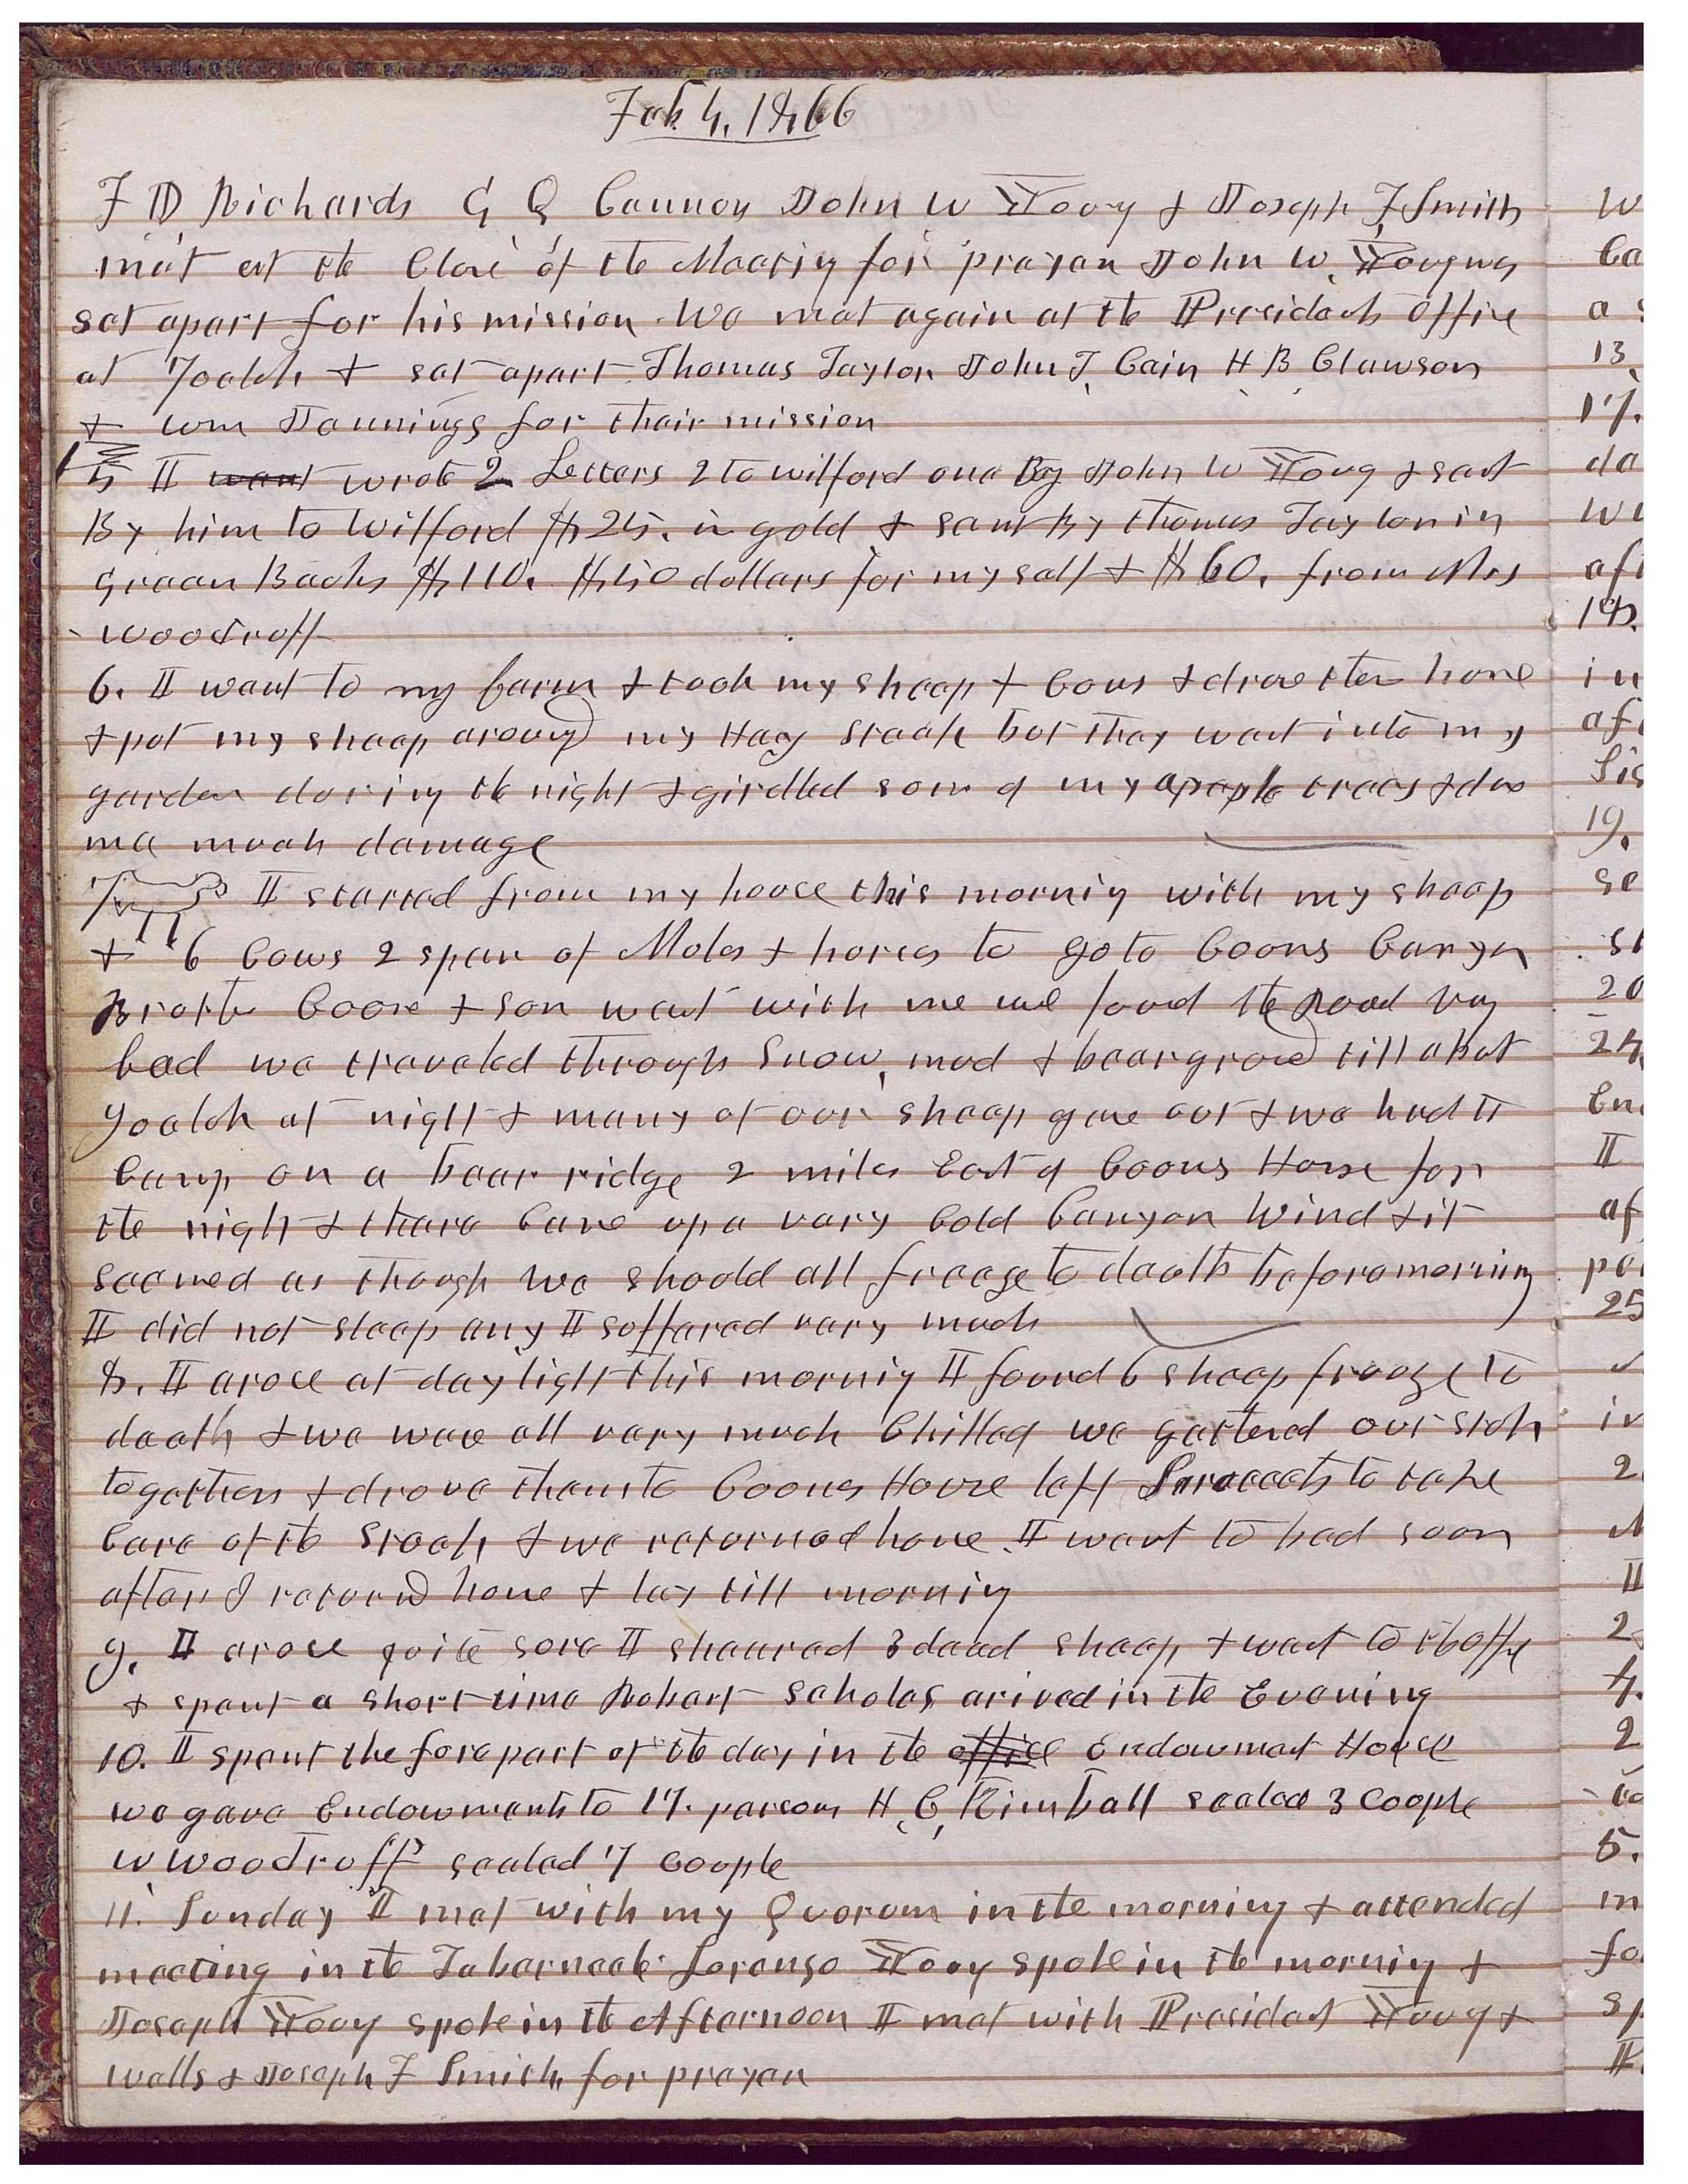 Feb 4, 1866
F D Richards G Q Cannon John W Young & Joseph F Smith
met at the Close of the Meeting for prayer John W. Young was
set apart for his mission. We met again at the Presidents office
at 7 oclok & set apart Thomas Taylor John T, Cain H B, Clawson
& wm Jennings for their mission
5 I went wrote 2 Letters 2 to wilford one By John W Young & sent
By him to Wilford $25. in gold & sent By thomas Taylor in
Green Backs $110. $50 dollars for myself & $60. from Mrs
woodruff
6. I went to my farm & took my sheep & Cows & drove them home
& put my sheep around my Hay Stack but they went into my
garden during the night & girdled som of my apple trees & dun
me much damage
7 I started from my house this morning with my sheep
& 6 Cows 2 span of Mules & horses to go to Coons Canyn
Brother Coon & son went with me we found the Road vry
bad we traveled through Snow, mud & bear ground till about
9 oclok at night & many of our sheep gave out & we had to
Camp on a bear ridge 2 miles East of Coons House for
the night & there Came up a very Cold Canyon Wind & it
seemed as though we should all freeze to death before morning
I did not sleep any I suffered very much
8. I arose at daylight this morning I found 6 sheep frooze to
death & we ware all very much Chilled we gathered our stok
together & drove them to Coons House left to take
Care of the Stock & we returned home. I went to bed soon
after I returnd home & lay till morning
9. I arose quite sore I sheared 3 dead sheep & went to the offie
& spent a short time Robert Scholes arived in the Evening
10. I spent the fore part of the day in the office Endowment House
we gave Endowments to 17. persons H, C, Kimball sealed 3 Couple
W Woodruff sealed 7 couple
11. Sunday I met with my Quorum in the morning & attended
meeting in the Tabernacle Lorenzo Young spoke in the morning &
Joseph Young spoke in the Afternoon I met with President Young &
wells & Joseph F Smith for prayer
W
Ca
a s
13.
17.
da
wi
aft
18.
in
aft
Sis
19.
se
st
20
24
En
I
af
25
in
I
4.
2
5.
m
fo
sp